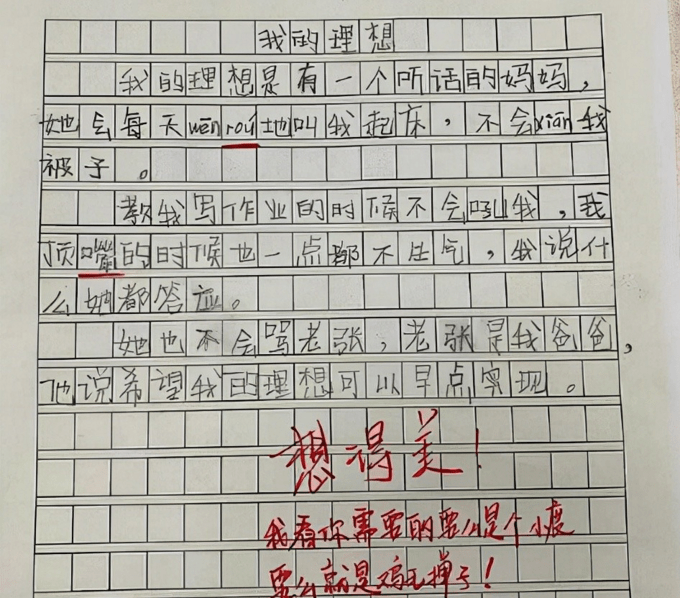 我的理想
我的理想是有一个听话的妈妈，
她会每天wēn róu地叫我起床，不会xiān我
被子。
教我写作业的时候不会吼我，我
顶嘴的时候也一点都不生气，我说什
么她都答应。
她也不会骂老张，老张是我爸爸，
他说希望我的理想可以早点实现。
想得美！
我看你需要的要么是个小瘪
要么就是鸡毛掸子！